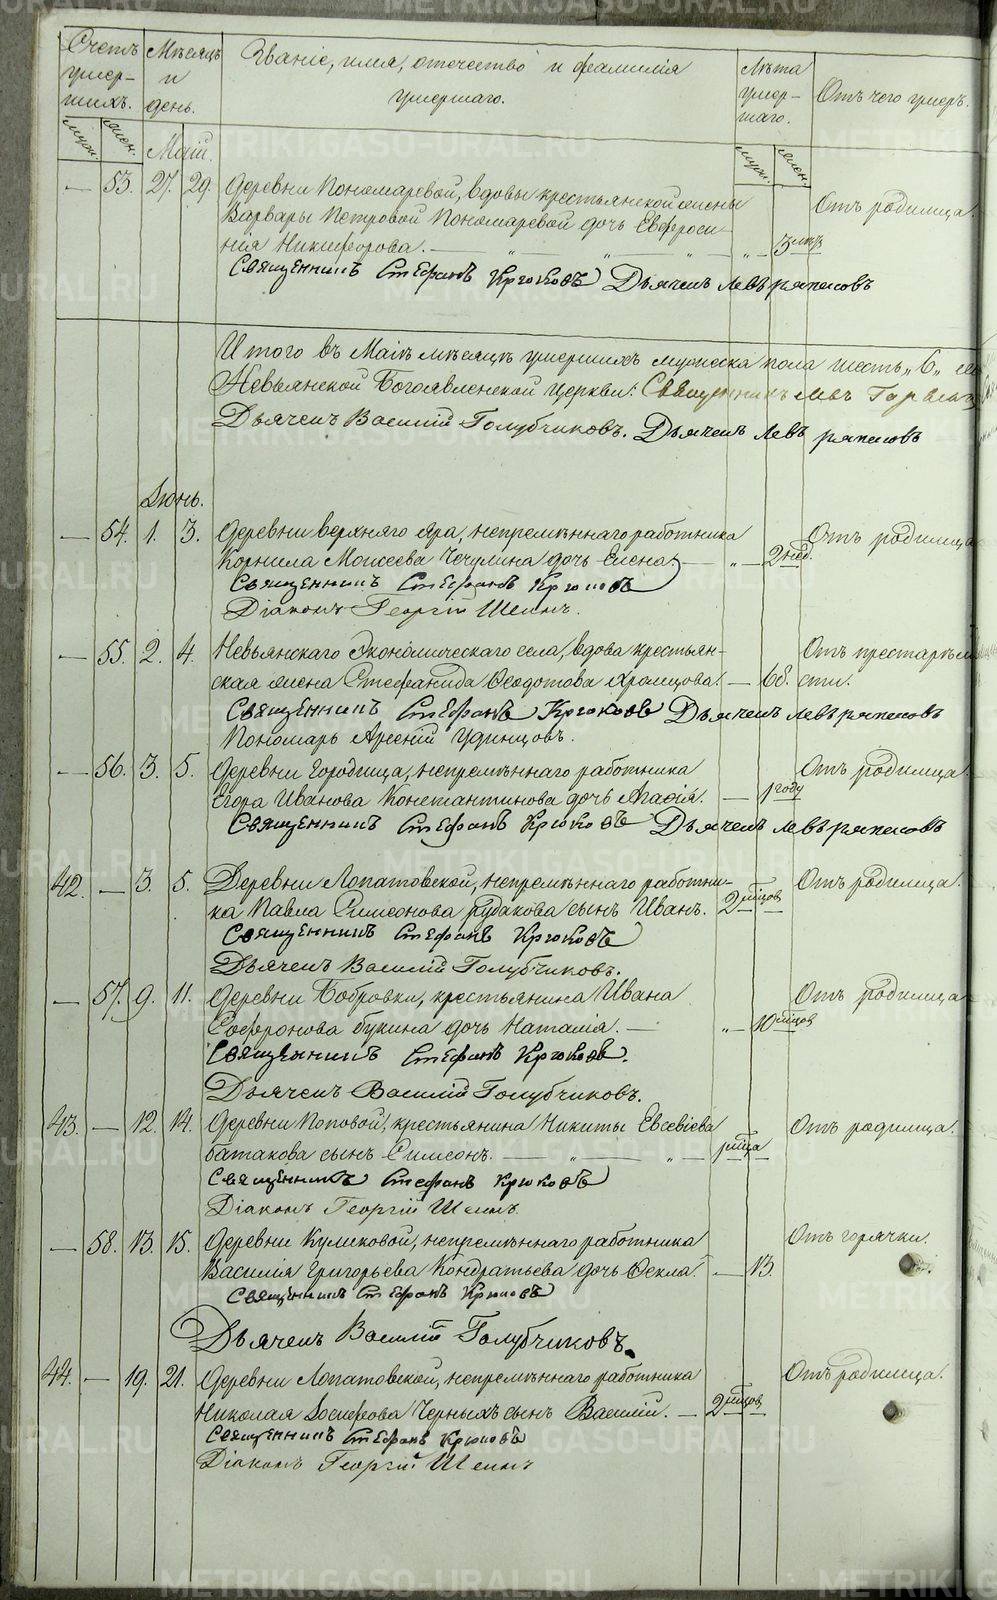 Счетъ умер-
шихъ.
Мѣсяцъ
и
день.
Званіе, имя, отечество и фамилія
умершаго.
Лѣта
умер-
шаго.
Отъ чего умеръ.
муж. жен.
муж. жен.
Маій.
— 53. 27. 29. Деревни Пономаревой, вдовы крестьянской жены Отъ родимца.
Варвары Петровой Пономаревой дочь Евфроси-
нія Никифорова. — „ — 3 лѣтъ
Священникъ Стефанъ Крюковъ Дьячекъ Левъ Ряпасовъ
Итого въ Маіѣ мѣсяцѣ умершихъ мужеска пола шесть „6„
Невьянской Богоявленской Церкви: Священникъ Левъ
Дьячекъ Василій Голубчиковъ. Дьячекъ Левъ Ряпасовъ
Іюнь.
— 54. 1. 3. Деревни верхняго Яра, непремѣннаго работника Отъ родимца
Корнила Моисеева Чечулина дочь Елена. „ — 2 нед.
Священникъ Стефанъ Крюковъ
Діаконъ Георгій Шеинъ.
— 55. 2. 4. Невьянскаго Экономическаго села, вдова крестьян- Отъ престарѣло
ская жена Стефанида Ѳеодотова Храмцова. — 66. сти.
Священникъ Стефанъ Крюковъ Дьячекъ Левъ Ряпасовъ
Пономарь Арсеній Удинцовъ.
— 56. 3. 5. Деревни Городища, непремѣннаго работника Отъ родимца.
Егора Иванова Константинова дочь Агафія. — 1 году
Священникъ Стефанъ Крюковъ Дьячекъ Левъ Ряпасовъ
42. — 3. 5. Деревни Лопатовской, непремѣннаго работни- Отъ родимца.
ка Павла Симеонова Рудакова сынъ Иванъ. 2 мѣцовъ
Священникъ Стефанъ Крюковъ
Дьячекъ Василій Голубчиковъ.
— 57. 9. 11. Деревни Бобровки, крестьянина Ивана Отъ родимца
Софронова Букина дочь Наталія. — „ — 10 мѣцовъ
Священникъ Стефанъ Крюковъ.
Дьячекъ Василій Голубчиковъ.
43. — 12. 14. Деревни Поповой, крестьянина Никиты Евсевіева Отъ родимца.
Батакова сынъ Симеонъ. — „ — „ — 1 мѣца
Священникъ Стефанъ Крюковъ
Діаконъ Георгій Шеинъ
— 58. 13. 15. Деревни Куликовой, непремѣннаго работника Отъ горячки.
Василія Григорьева Кондратьева дочь Ѳекла. — 13.
Священникъ Стефанъ Крюковъ
Дьячекъ Василій Голубчиковъ.
44. — 19. 21. Деревни Лопатовской, непремѣннаго работника Отъ родимца.
Николая Іосифова Черныхъ сынъ Василій. — 2 мѣцовъ
Священникъ Стефанъ Крюковъ
Діаконъ Георгій Шеинъ
METRIKI.GASO-URAL.RU